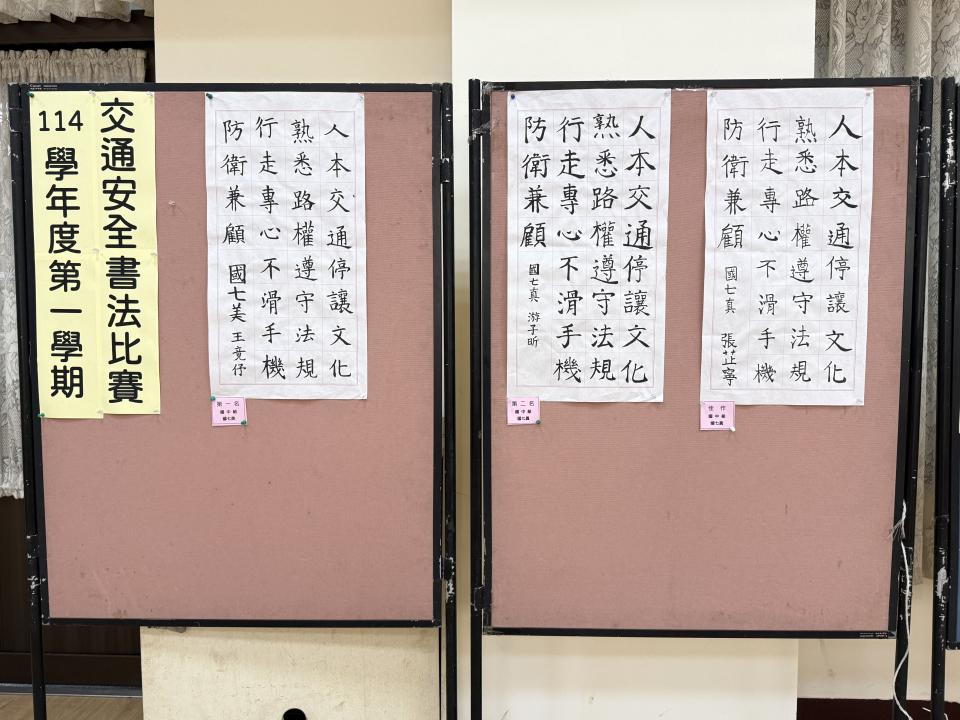 114學年度第一學期
交通安全書法比賽
人本交通停讓文化
熟悉路權遵守法規
行走專心不滑手機
防衛兼顧
國七美 王竟伃
第一名
國中組
國七美
人本交通停讓文化
熟悉路權遵守法規
行走專心不滑手機
防衛兼顧
國七真 游子昕
第二名
國中組
國七真
人本交通停讓文化
熟悉路權遵守法規
行走專心不滑手機
防衛兼顧
國七真 張芷寧
佳作
國中組
國七真